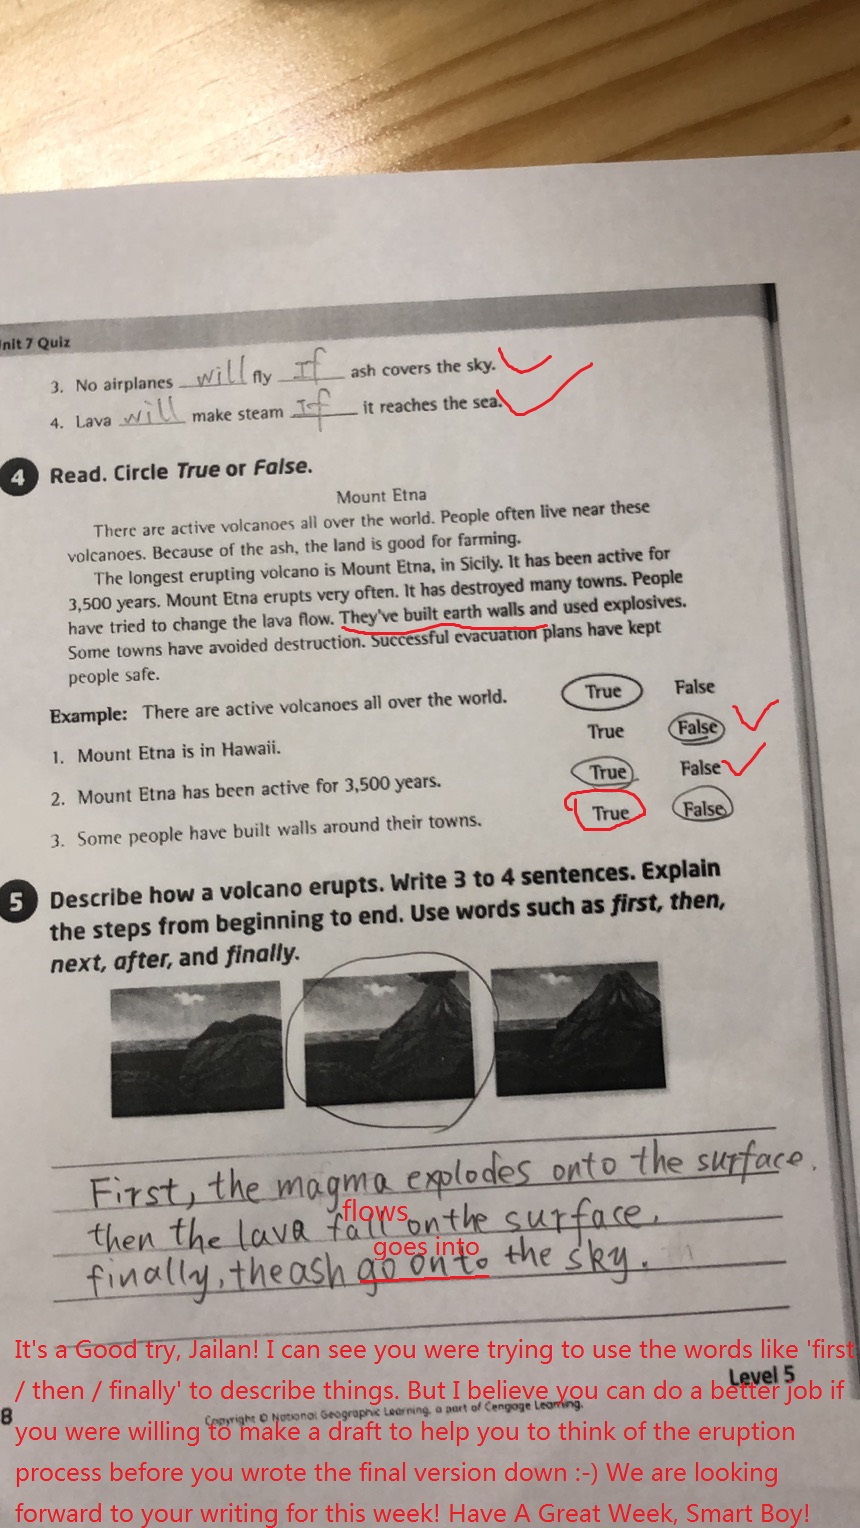 Unit 7 Quiz
3. No airplanes will fly If ash covers the sky.
4. Lava will make steam If it reaches the sea.
4 Read. Circle True or False.
Mount Etna
There are active volcanoes all over the world. People often live near these
volcanoes. Because of the ash, the land is good for farming.
The longest erupting volcano is Mount Etna, in Sicily. It has been active for
3,500 years. Mount Etna erupts very often. It has destroyed many towns. People
have tried to change the lava flow. They've built earth walls and used explosives.
Some towns have avoided destruction. Successful evacuation plans have kept
people safe.
Example: There are active volcanoes all over the world. True False
1. Mount Etna is in Hawaii. True False
2. Mount Etna has been active for 3,500 years. True False
3. Some people have built walls around their towns. True False
5 Describe how a volcano erupts. Write 3 to 4 sentences. Explain
the steps from beginning to end. Use words such as first, then,
next, after, and finally.
First, the magma explodes onto the surface.
flows
then the lava fall on the surface.
goes into
finally, the ash go onto the sky.
It's a Good try, Jailan! I can see you were trying to use the words like 'first
Level 5
/ then / finally' to describe things. But I believe you can do a better job if
8 Copyright © National Geographic Learning, a part of Cengage Learning.
you were willing to make a draft to help you to think of the eruption
process before you wrote the final version down :-) We are looking
forward to your writing for this week! Have A Great Week, Smart Boy!